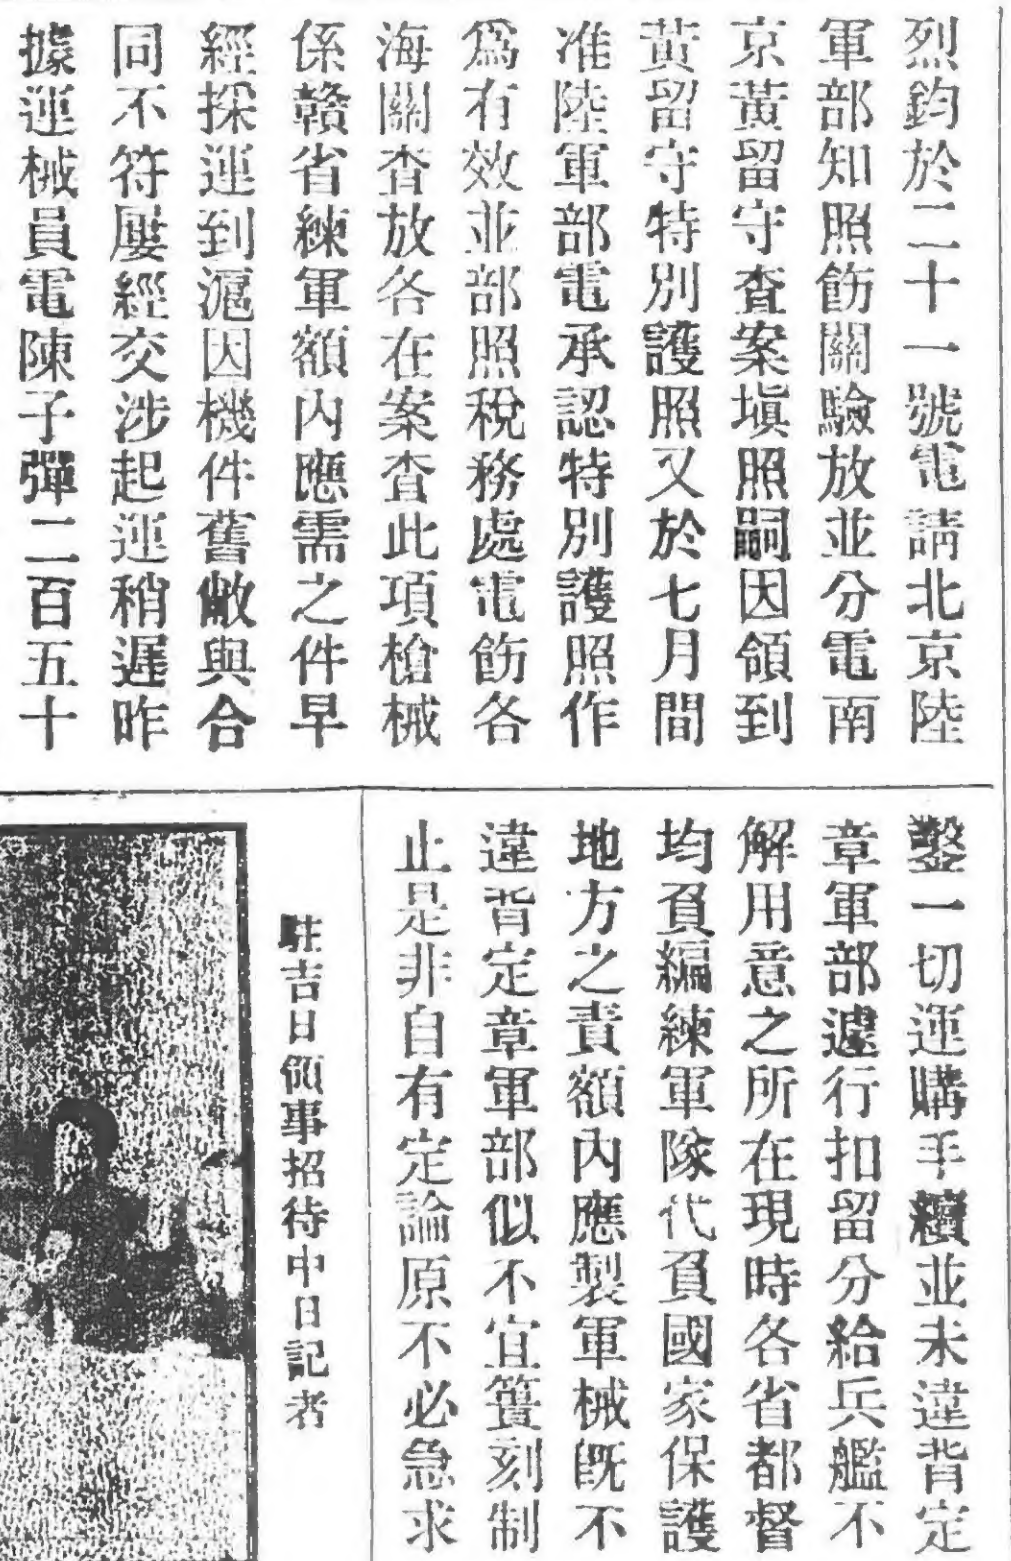 烈鈞於二十一號電請北京陸
軍部知照飭關驗放並分電南
京黃留守查案塡照嗣因領到
黃留守特別護照又於七月間
准陸軍部電承認特別護照作
爲有效並部照稅務處電飭各
海關查放各在案查此項槍械
係贛省練軍額內應需之件早
經採運到滬因機件舊敝與合
同不符屢經交涉起運稍遲昨
據運械員電陳子彈二百五十
鑿一切運購手續並未違背定
章軍部遽行扣留分給兵艦不
解用意之所在現時各省都督
均負編練軍隊代負國家保護
地方之責額內應製軍械旣不
違背定章軍部似不宜簧刻制
止是非自有定論原不必急求
駐吉日領事招待中日記者